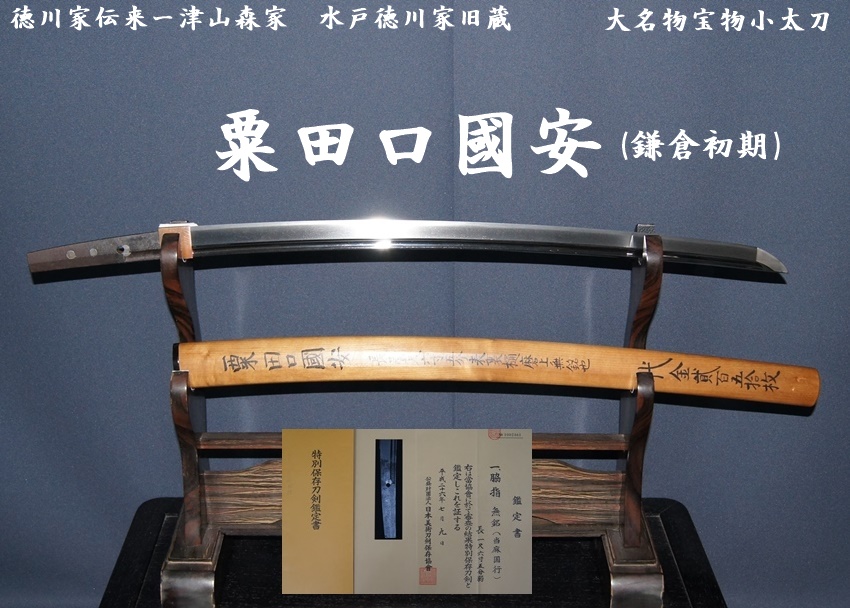 徳川家伝来ー津山森家 水戸徳川家旧蔵 大名物宝物小太刀
粟田口國安(鎌倉初期)
粟田口國安
磨上無銘也
代金貳百五拾枚
特別保存刀剣鑑定書
鑑定書
一、脇指 無銘(当麻国行)
長 一尺六寸五分弱
右は當協會に於て審査の結果特別保存刀剣と
鑑定しこれを證する
平成二十六年七月九日
公益財団法人日本美術刀剣保存協會